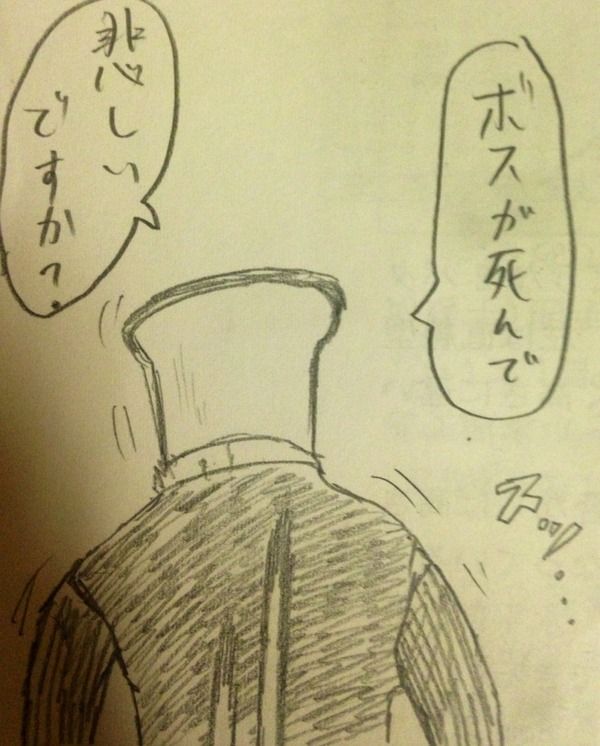 ボスが死んで
悲しい
ですか?